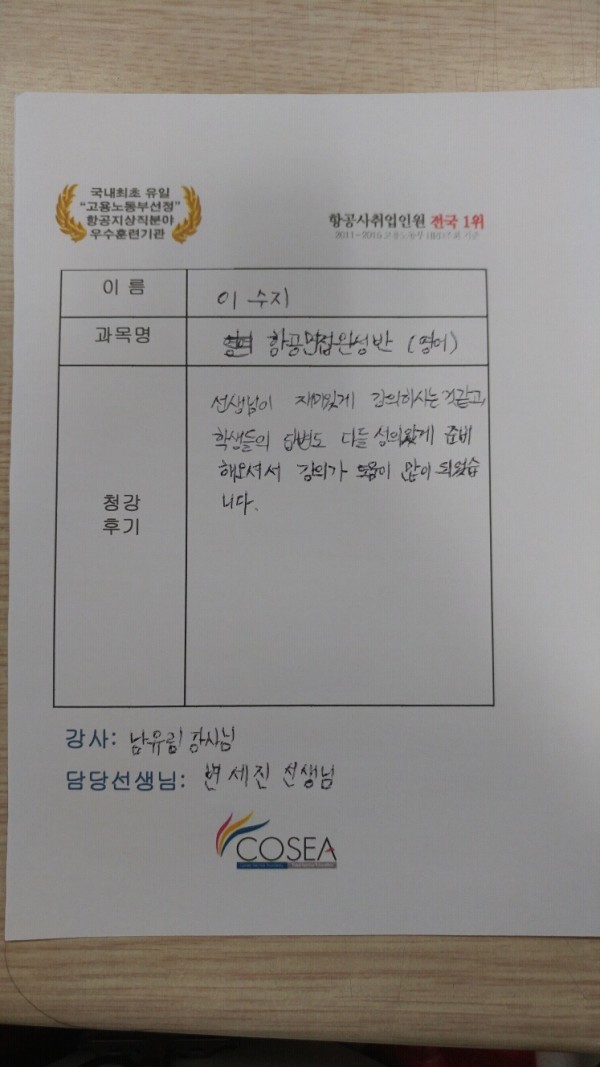 국내최초 유일
"고용노동부선정"
항공지상직분야
우수훈련기관
항공사취업인원 전국 1위
2011~2015 고용노동부 기준
이 름
이 수지
과목명
항공면접완성반 (영어)
청강
후기
선생님이 재미있게 강의하시는 것같고,
학생들의 답변도 다들 성의있게 준비
해오셔서 강의가 도움이 많이 되었습
니다.
강사: 남유림 강사님
담당선생님: 변세진 선생님
COSEA